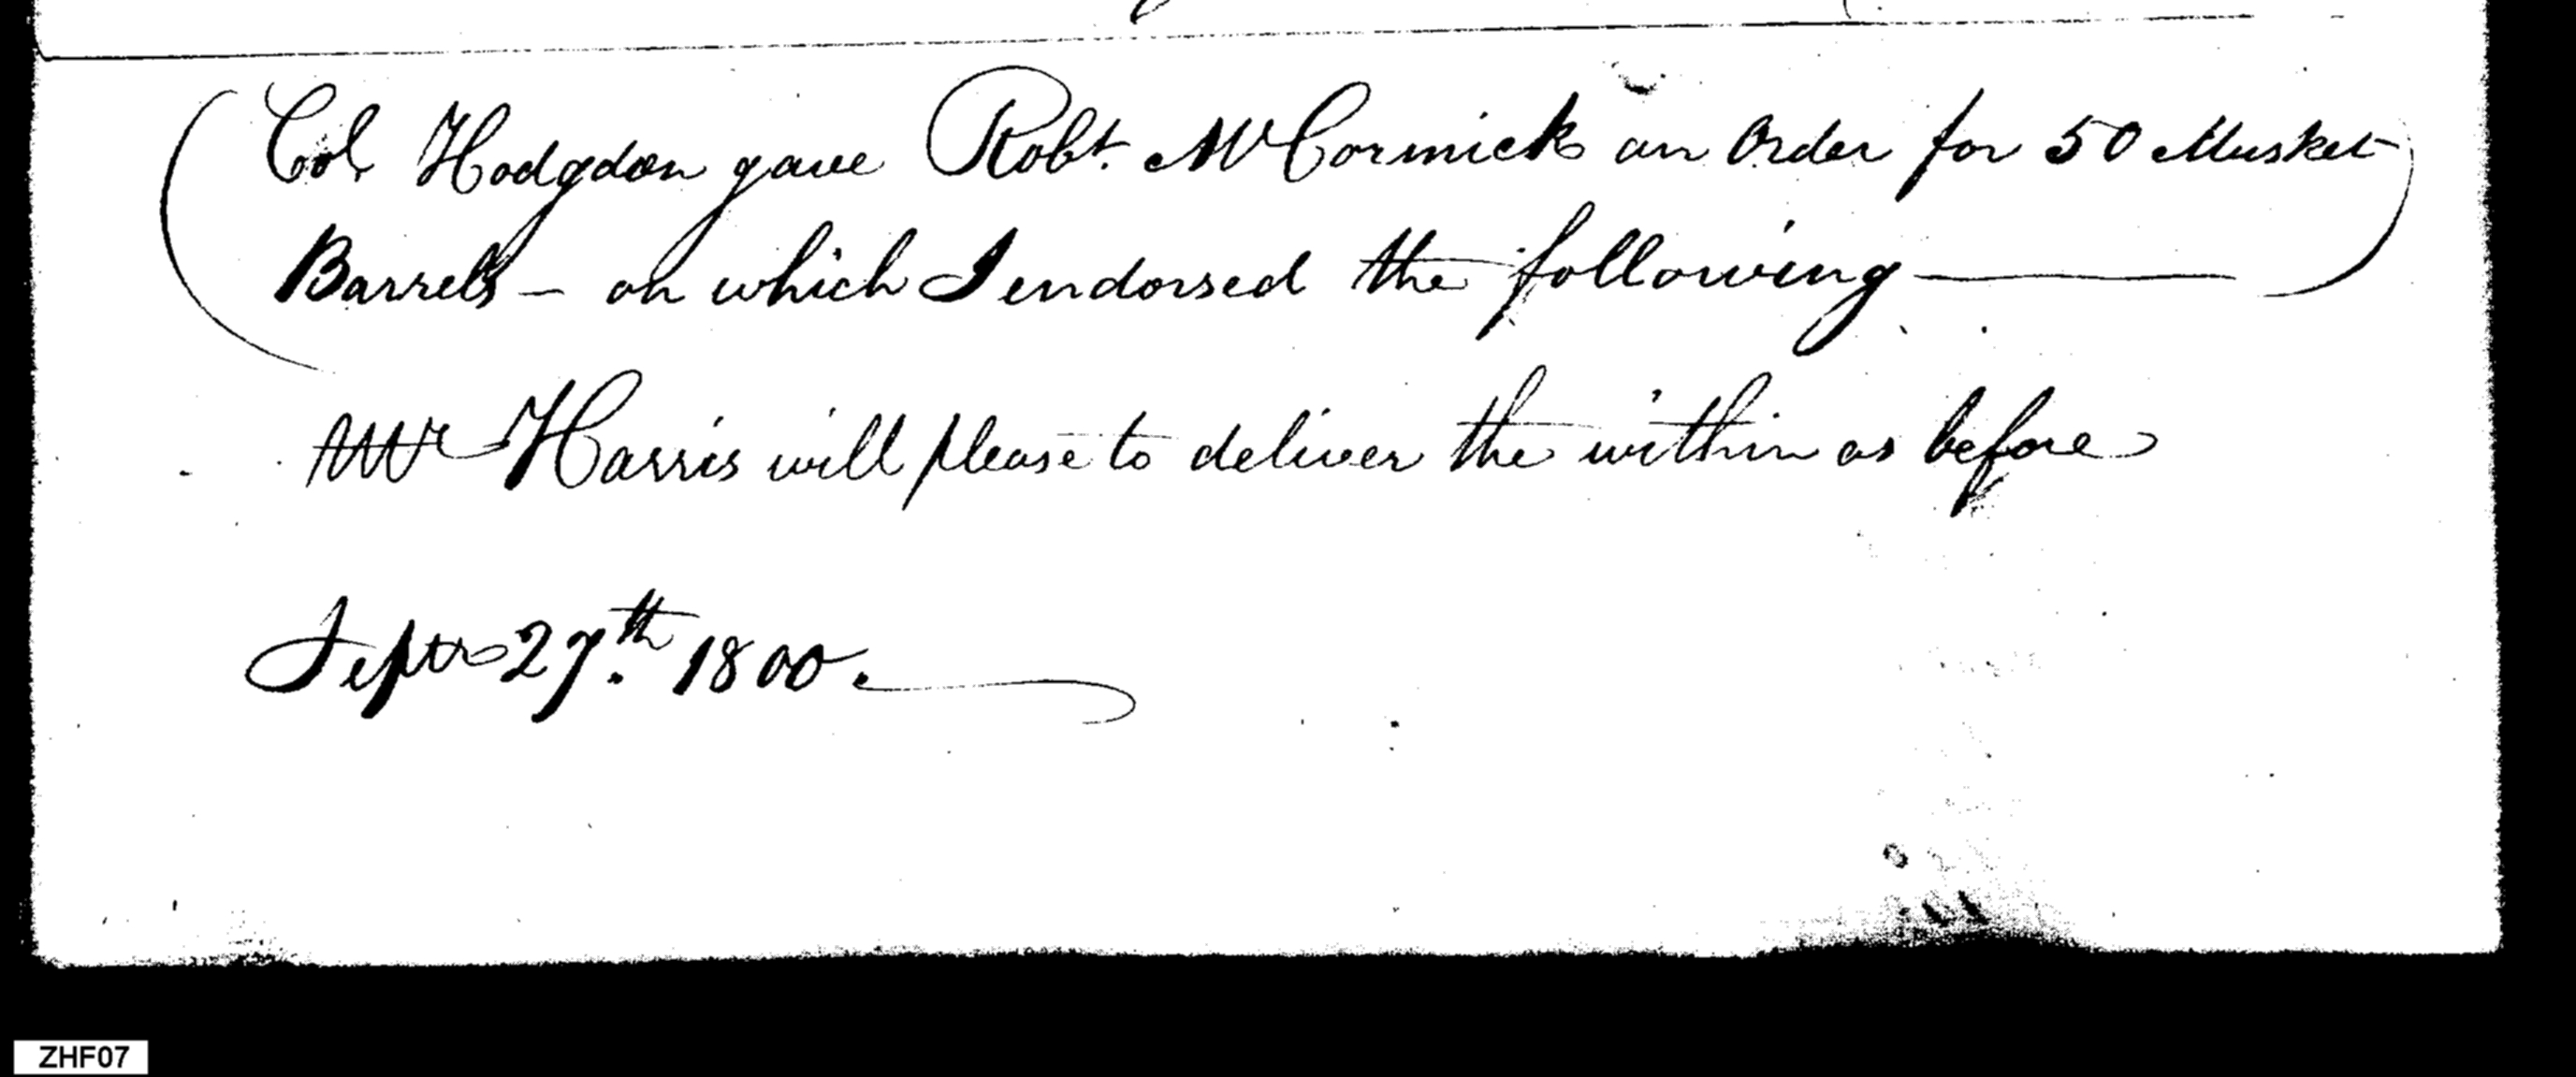 (Col. Hodgdon gave Robt. McCormick an Order for 50 Musket
Barrels – on which I endorsed the following —)
Mr Harris will please to deliver the within as before
Septr 27.th 1800.
ZHF07